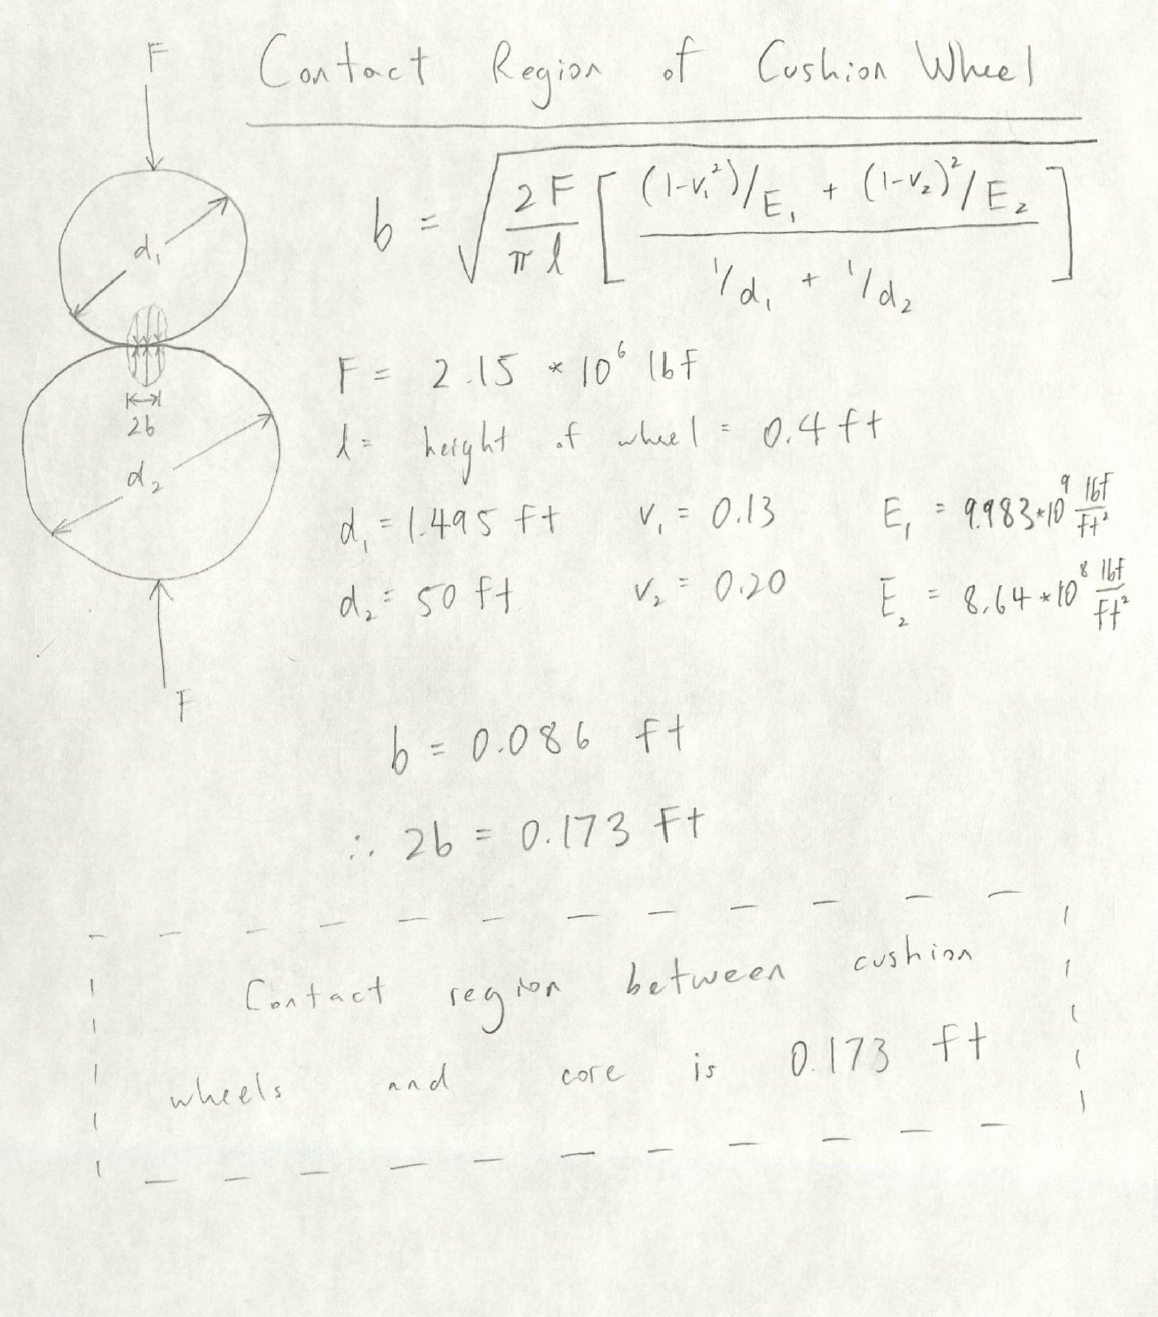 F
Contact Region of Cushion Wheel
b = √(2F/πl [((1-v₁²)/E₁ + (1-v₂)²/E₂)/(1/d₁ + 1/d₂)])
d₁
F = 2.15 * 10⁶ lbf
2b
l = height of wheel = 0.4 ft
d₂
d₁ = 1.495 ft v₁ = 0.13 E₁ = 9.983*10⁹ lbf/ft²
d₂ = 50 ft v₂ = 0.20 E₂ = 8.64*10⁸ lbf/ft²
F
b = 0.086 ft
∴ 2b = 0.173 ft
Contact region between cushion
wheels and core is 0.173 ft